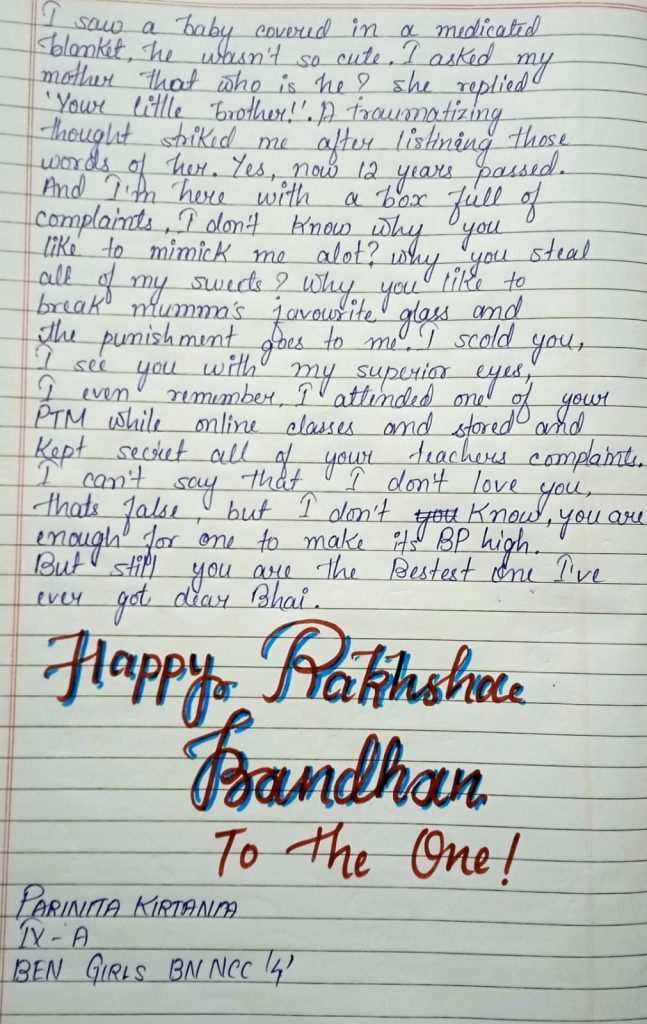 I saw a baby covered in a medicated
blanket, he wasn't so cute. I asked my
mother that who is he? she replied
'Your little brother!'. A traumatizing
thought striked me after listining those
words of her. Yes, now 12 years passed.
And I'm here with a box full of
complaints, I don't know why you
like to mimick me alot? why you steal
all of my sweets? Why you like to
break mumma's favourite glass and
the punishment goes to me. I scold you,
I see you with my superior eyes,
I even remember, I attended one of your
PTM while online classes and stored and
kept secret all of your teachers complaints.
I can't say that I don't love you,
thats false, but I don't you know, you are
enough for one to make its BP high.
But still you are the Bestest one I've
ever got diar Bhai.
Happy Rakhshaa
Bandhan
To the One!
PARINITA KIRTANIA
IX-A
BEN GIRLS BN NCC '4'